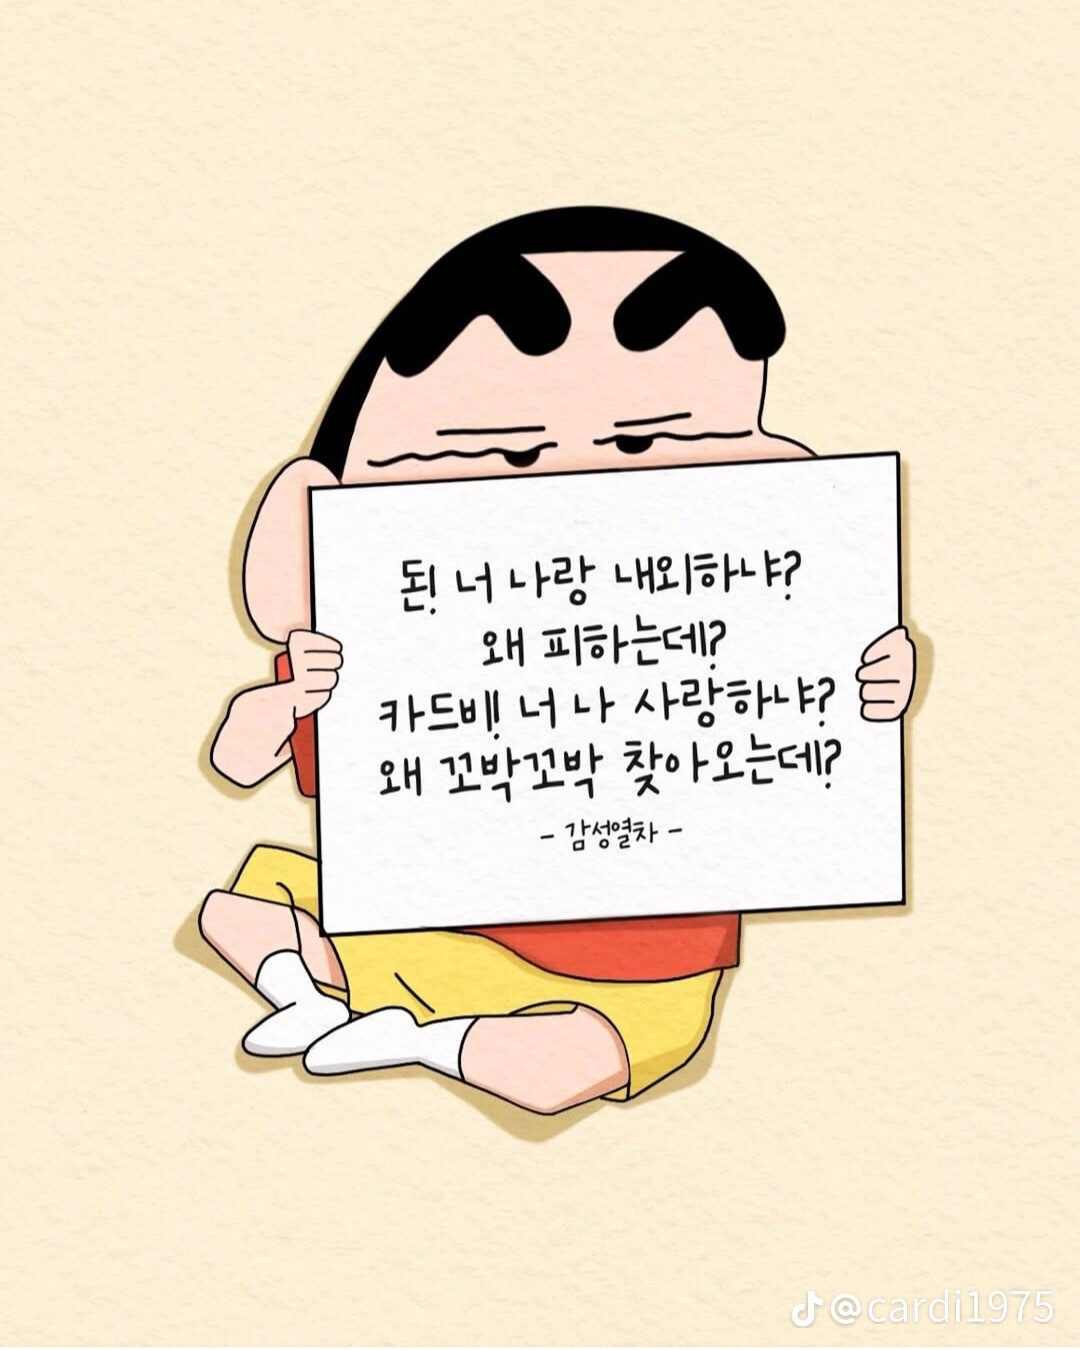 돈! 너 나랑 내외하냐?
왜 피하는데?
카드비! 너 나 사랑하냐?
왜 꼬박꼬박 찾아오는데?
- 감성열차 -
@cardi1975